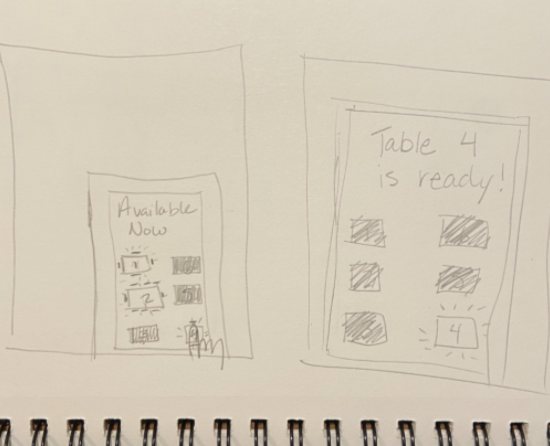 Available
Now
1
2
Table 4
is ready!
4